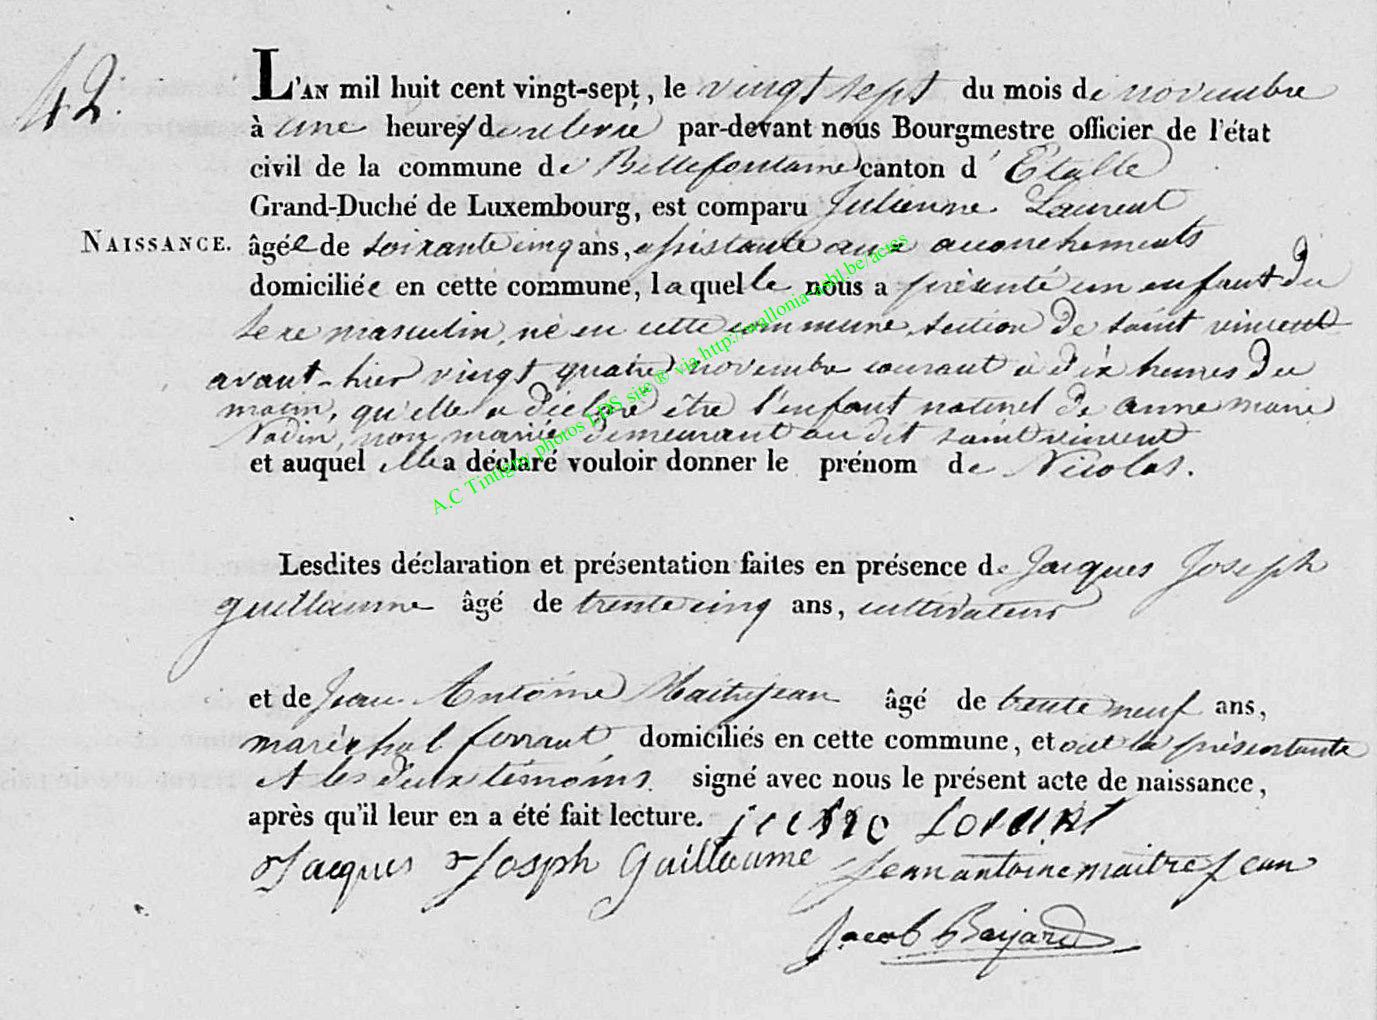 42.
L'AN mil huit cent vingt-sept, le vingt sept du mois de novembre
à une heures de relevée par-devant nous Bourgmestre officier de l'état
civil de la commune de Bellefontaine canton d'Etalle
Grand-Duché de Luxembourg, est comparu Julienne Laurent
NAISSANCE.
âgée de soixante cinq ans, assistante aux accouchements
domiciliée en cette commune, laquelle nous a présenté un enfant du
sexe masculin, né en cette commune, section de saint vincent
avant-hier vingt quatre novembre courant à dix heures du
matin, qu'elle a déclaré être l'enfant naturel de anne marie
Nadin, non mariée demeurant au dit saint vincent
et auquel elle a déclaré vouloir donner le prénom de Nicolas.
A.C Tintigny photos LDS site® via http://wallonia-asbl.be/actes
Lesdites déclaration et présentation faites en présence de Jacques Joseph
guillaume âgé de trente cinq ans, cultivateur
et de Jean Antoine Maitrejean âgé de trente neuf ans,
maréchal ferrant domiciliés en cette commune, et ont la présentante
et les deux témoins signé avec nous le présent acte de naissance,
après qu'il leur en a été fait lecture.
Jacques Joseph Guillaume Jean antoine maitrejean
Jacob Bayard